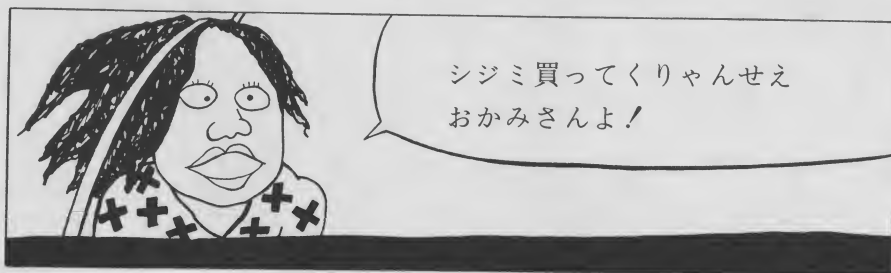 シジミ買ってくりゃんせえ
おかみさんよ!